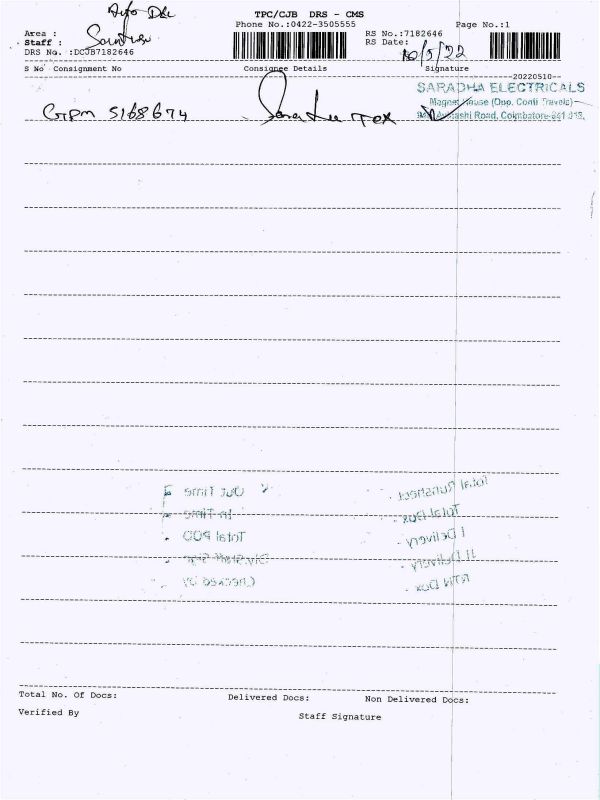 TPC/CJB DRS - CMS
Phone No.:0422-3505555
Page No.:1
Area :
Staff :
DRS No. :DCJB7182646
RS No.:7182646
RS Date:
10/5/22
S No Consignment No Consignee Details Signature
--20220510--
SARADHA ELECTRICALS
Magnet House (Opp. Conti Travels)
Road, Coimbatore-641 018.
5168674 Tex
Out Time
In Time
Total POD
Div. Staff Sign
Checked by
Total Runsheet
Total Dox
I Delivery
II Delivery
RTN Dox
Total No. Of Docs: Delivered Docs: Non Delivered Docs:
Verified By
Staff Signature